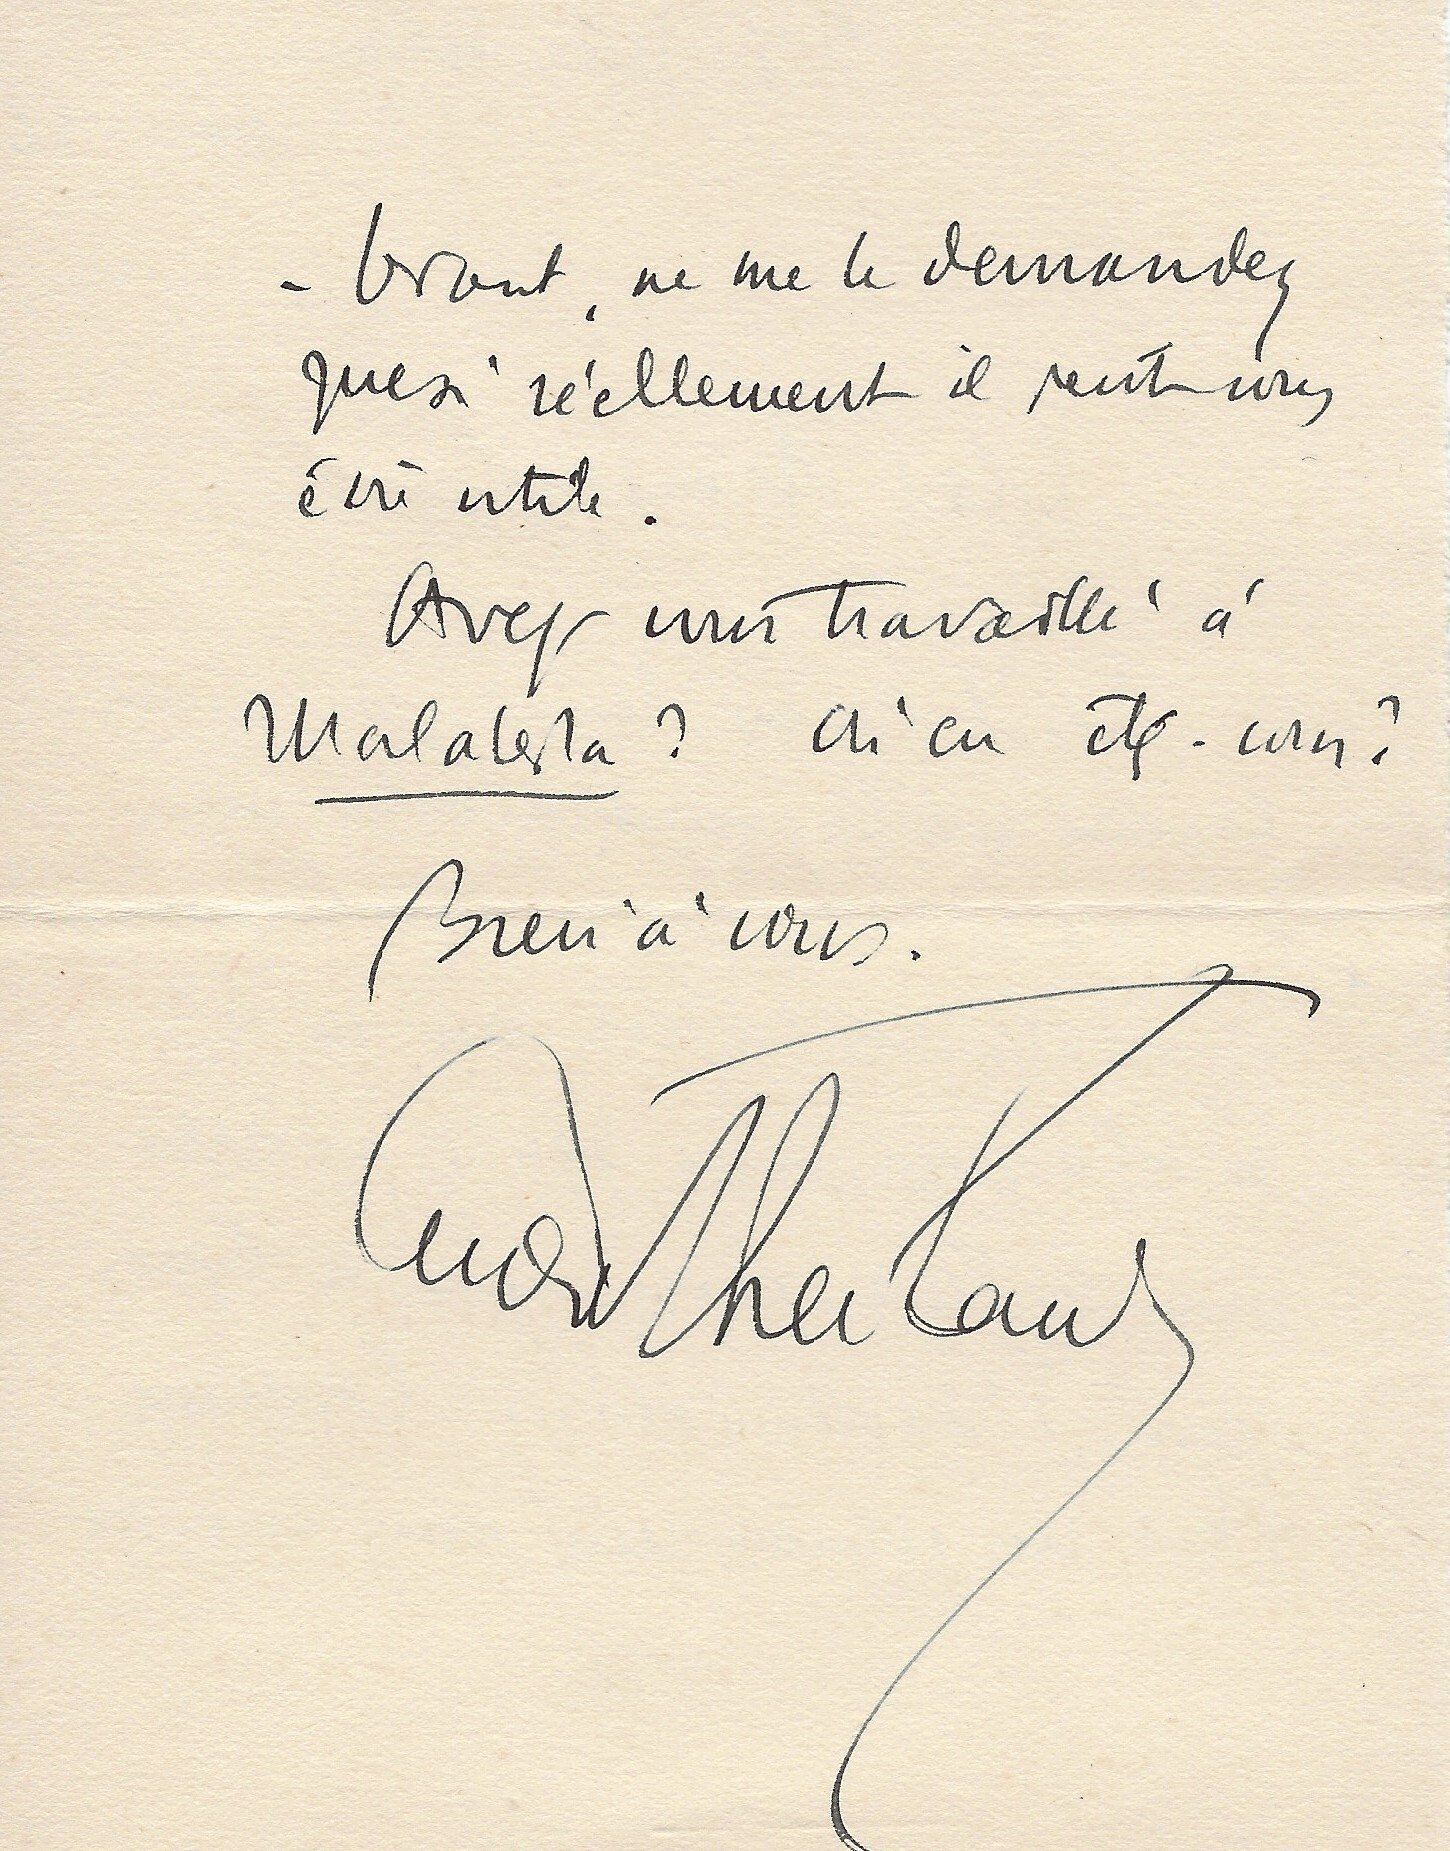 - vrant, ne me le demandez
que si réellement il peut vous
être utile.
Avez-vous travaillé à
Malatesta ? Où en êtes-vous ?
Bien à vous.